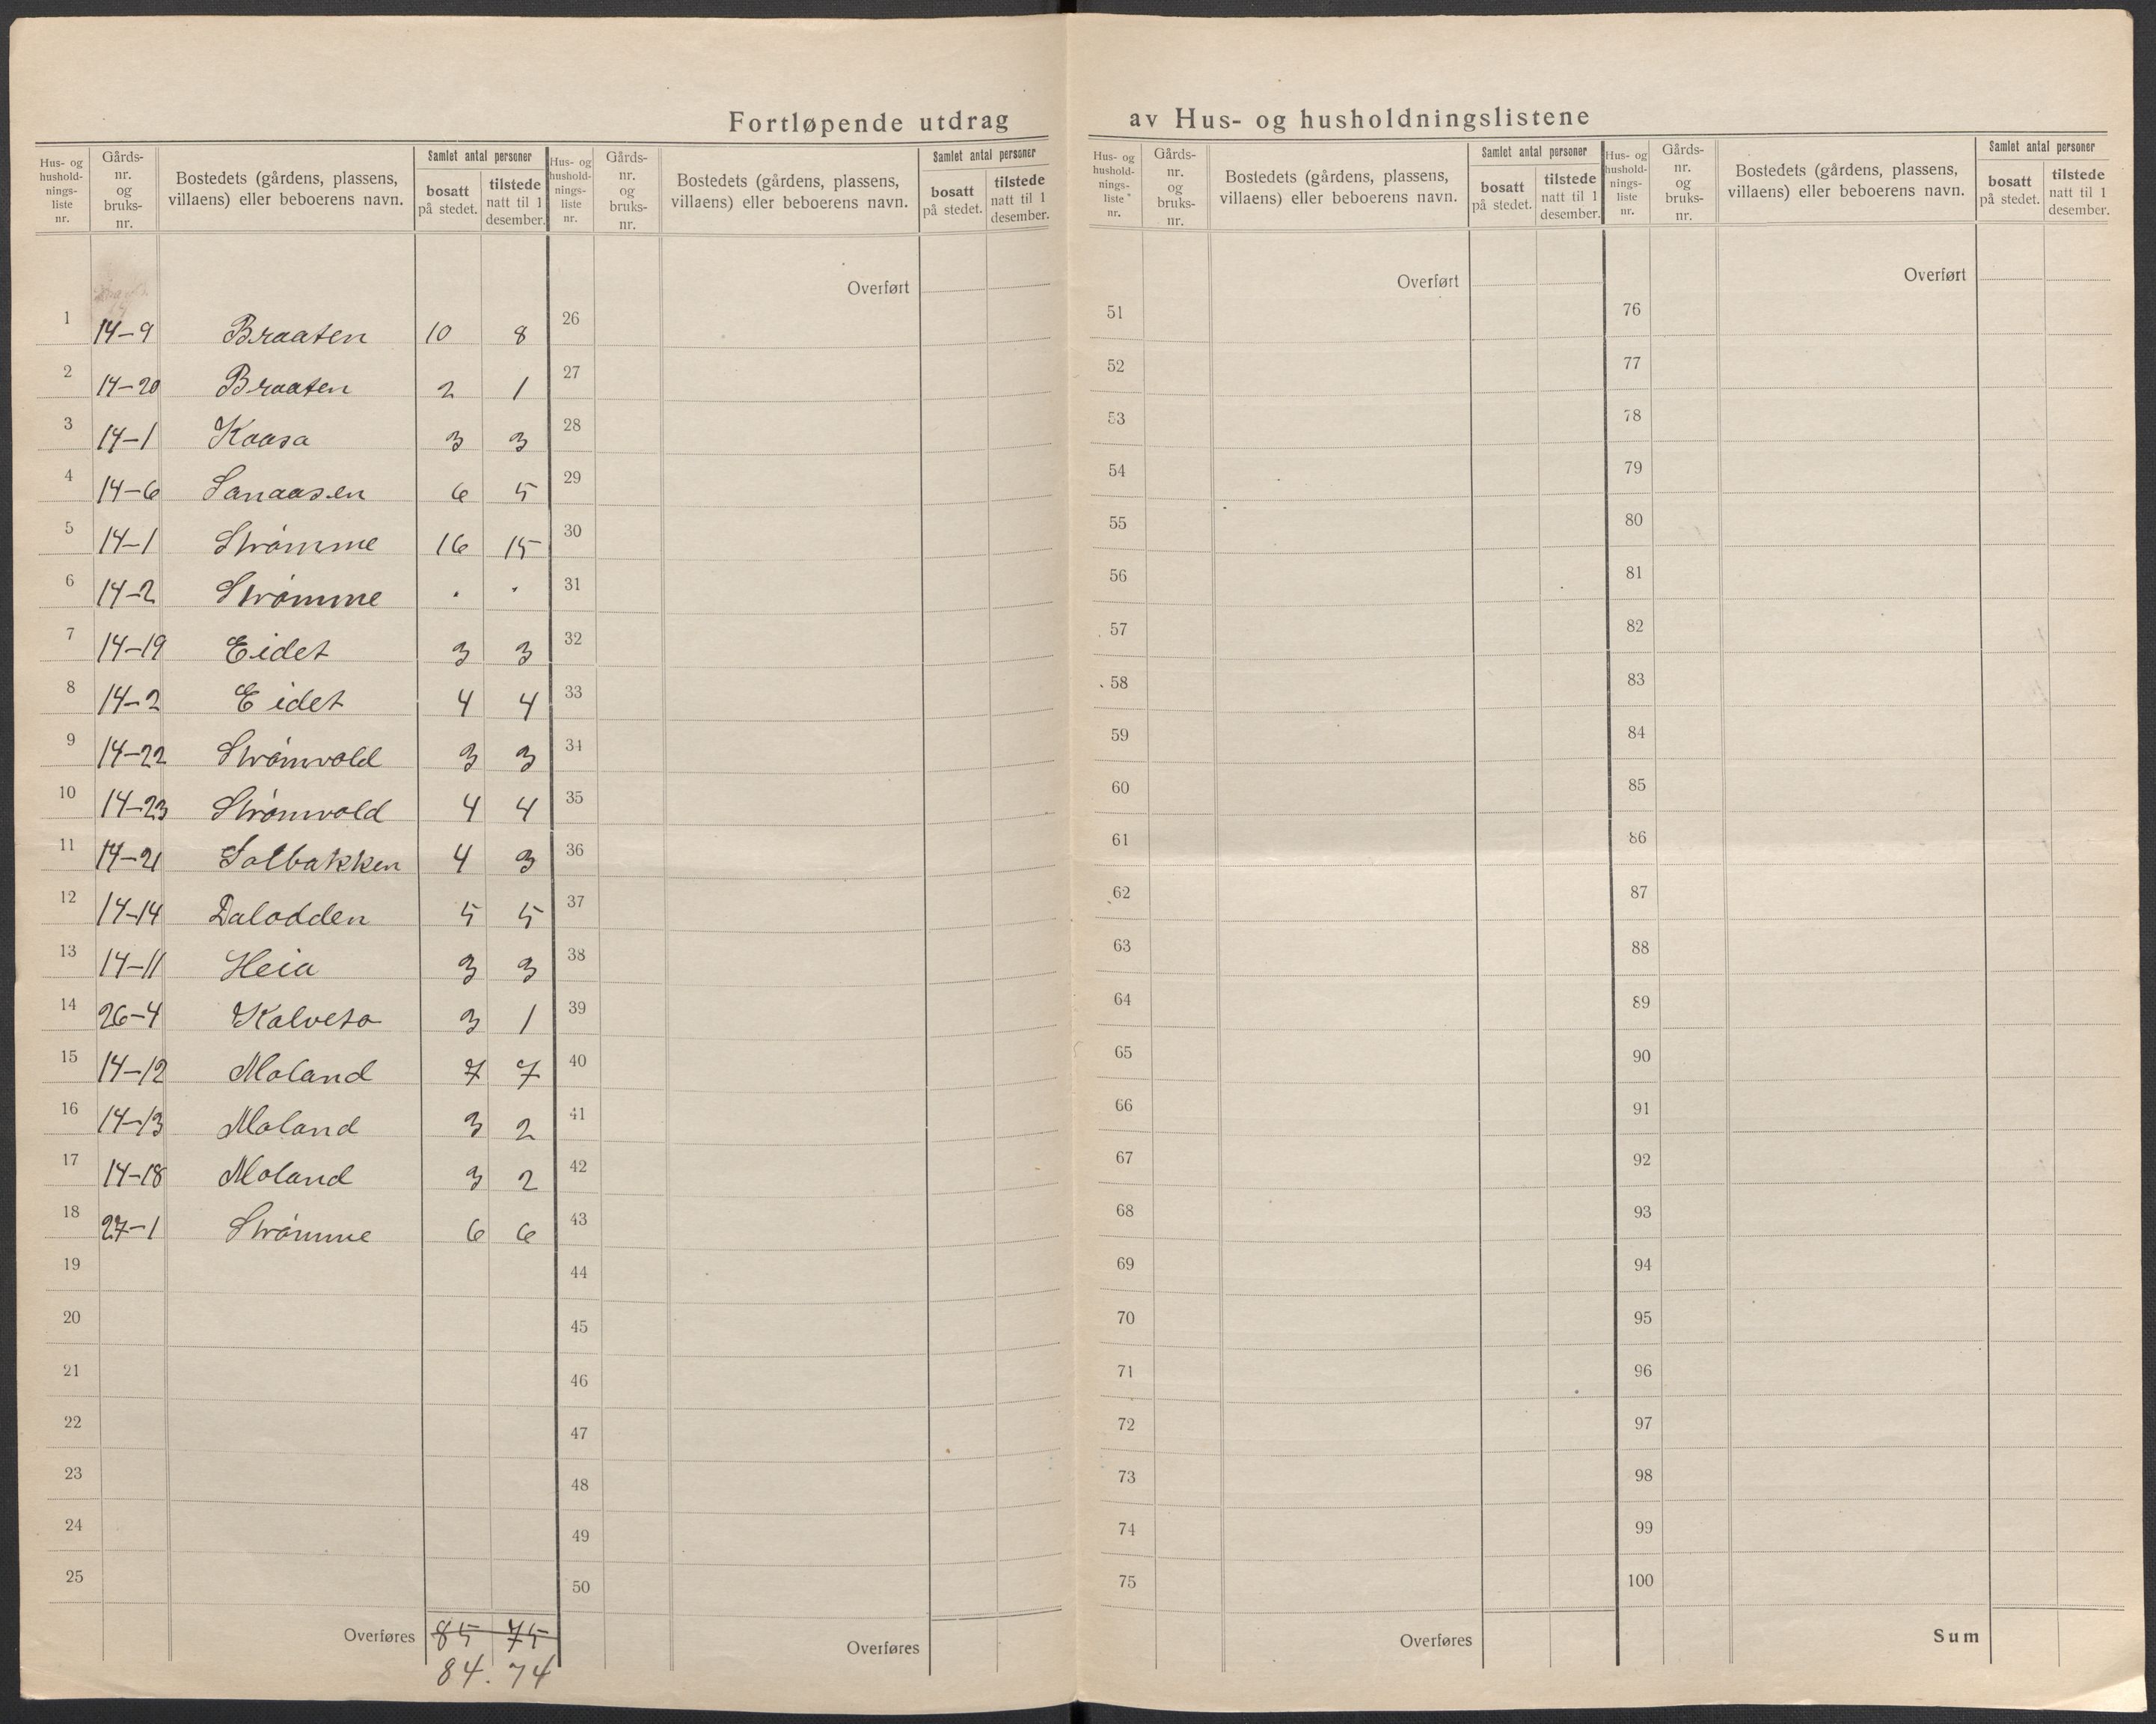 Fortløpende utdrag av Hus- og husholdningslistene
Hus- og hushold-nings-liste nr. | Gårds-nr. og bruks-nr. | Bostedets (gårdens, plassens, villaens) eller beboerens navn. | Samlet antal personer | bosatt på stedet. | tilstede natt til 1 desember.
1 14-9 Braaten 10 8
2 14-20 Braaten 2 1
3 14-1 Kaasa 3 3
4 14-6 Sanaasen 6 5
5 14-1 Strømme 16 15
6 14-2 Strømme . .
7 14-19 Eidet 3 3
8 14-2 Eidet 4 4
9 14-22 Strømvold 3 3
10 14-23 Strømvold 4 4
11 14-21 Solbakken 4 3
12 14-14 Dalodden 5 5
13 14-11 Heia 3 3
14 26-4 Kalveto 3 1
15 14-12 Moland 7 7
16 14-13 Moland 3 2
17 14-18 Moland 3 2
18 27-1 Strømme 6 6
19
20
21
22
23
24
25
Overføres 85 75
84. 74
Hus- og hushold-nings-liste nr. | Gårds-nr. og bruks-nr. | Bostedets (gårdens, plassens, villaens) eller beboerens navn. | Samlet antal personer | bosatt på stedet. | tilstede natt til 1 desember.
Overført
26
27
28
29
30
31
32
33
34
35
36
37
38
39
40
41
42
43
44
45
46
47
48
49
50
Overføres
Hus- og hushold-nings-liste nr. | Gårds-nr. og bruks-nr. | Bostedets (gårdens, plassens, villaens) eller beboerens navn. | Samlet antal personer | bosatt på stedet. | tilstede natt til 1 desember.
Overført
51
52
53
54
55
56
57
58
59
60
61
62
63
64
65
66
67
68
69
70
71
72
73
74
75
Overføres
Hus- og hushold-nings-liste nr. | Gårds-nr. og bruks-nr. | Bostedets (gårdens, plassens, villaens) eller beboerens navn. | Samlet antal personer | bosatt på stedet. | tilstede natt til 1 desember.
Overført
76
77
78
79
80
81
82
83
84
85
86
87
88
89
90
91
92
93
94
95
96
97
98
99
100
Sum